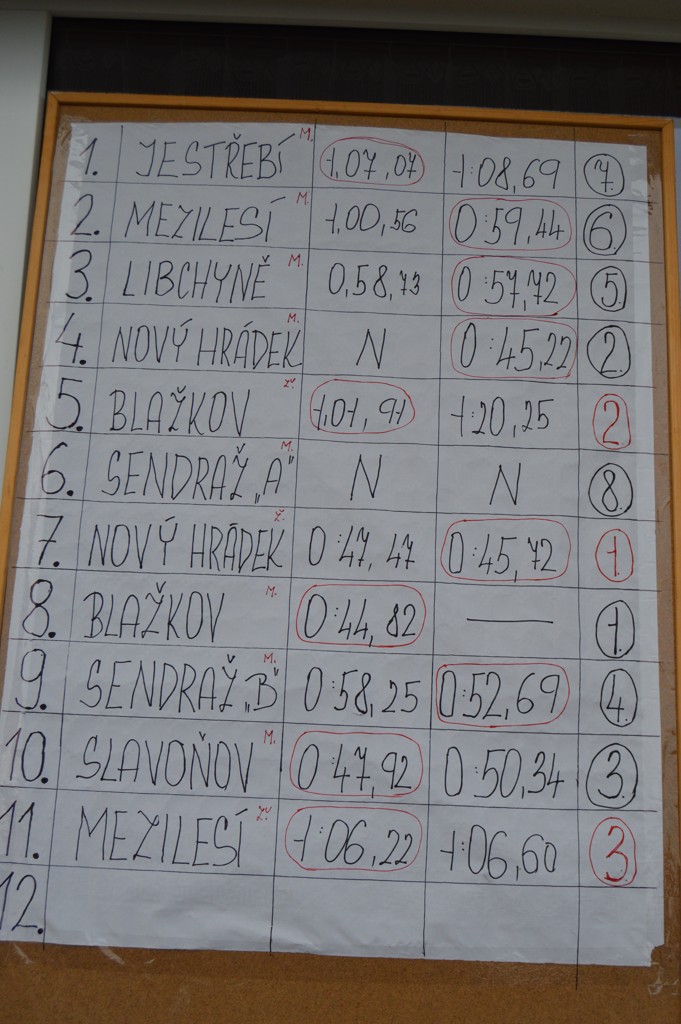 1. JESTŘEBÍ M. 1,07,07 1:08,69 7.
2. MEZILESÍ M. 1,00,56 0:59,44 6.
3. LIBCHYNĚ M. 0,58,73 0:57,72 5.
4. NOVÝ HRÁDEK M. N 0:45,22 2.
5. BLAŽKOV Ž. 1,01,91 1:20,25 2.
6. SENDRAŽ „A" M. N N 8.
7. NOVÝ HRÁDEK Ž. 0:47,47 0:45,72 1.
8. BLAŽKOV M. 0:44,82 — 1.
9. SENDRAŽ „B" M. 0:58,25 0:52,69 4.
10. SLAVOŇOV M. 0:47,92 0:50,34 3.
11. MEZILESÍ Ž. 1:06,22 1:06,60 3.
12.